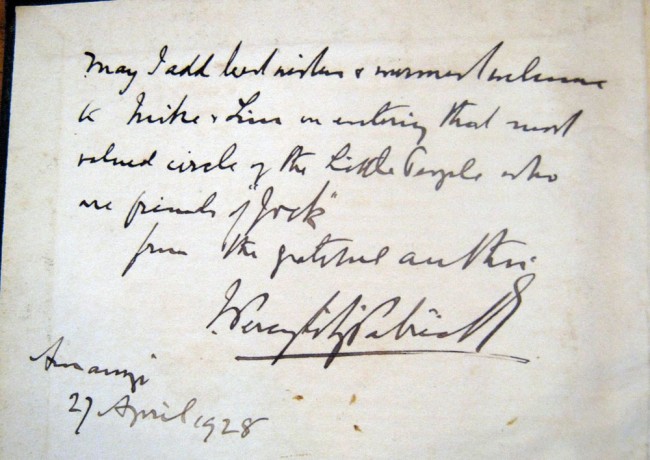 May I add best wishes & warmest welcome
to Mike & Lim on entering that most
valued circle of the Little People who
are friends of "Jock"
from the grateful author
J. Percy FitzPatrick
Amanzi
27 April 1928